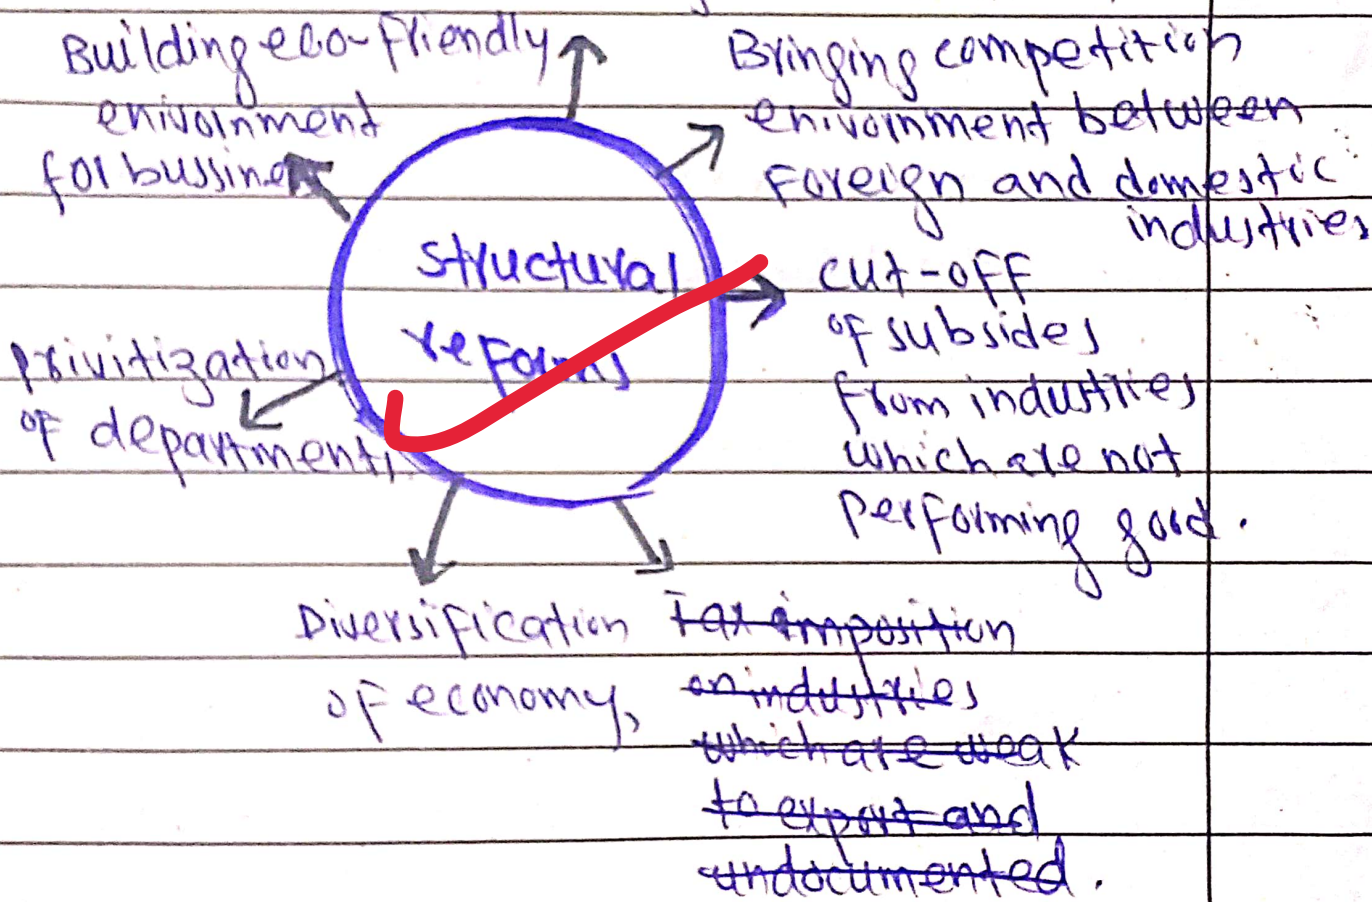 Building eco-friendly
enivornment
for bussines
Bringing competition
enivornment between
Foreign and domestic
industries
structural
reforms
cut-off
of subsides
from industries
which are not
performing good.
privitization
of departments,
Diversification
of economy,
Tax imposition
on industries
which are weak
to export and
undocumented.